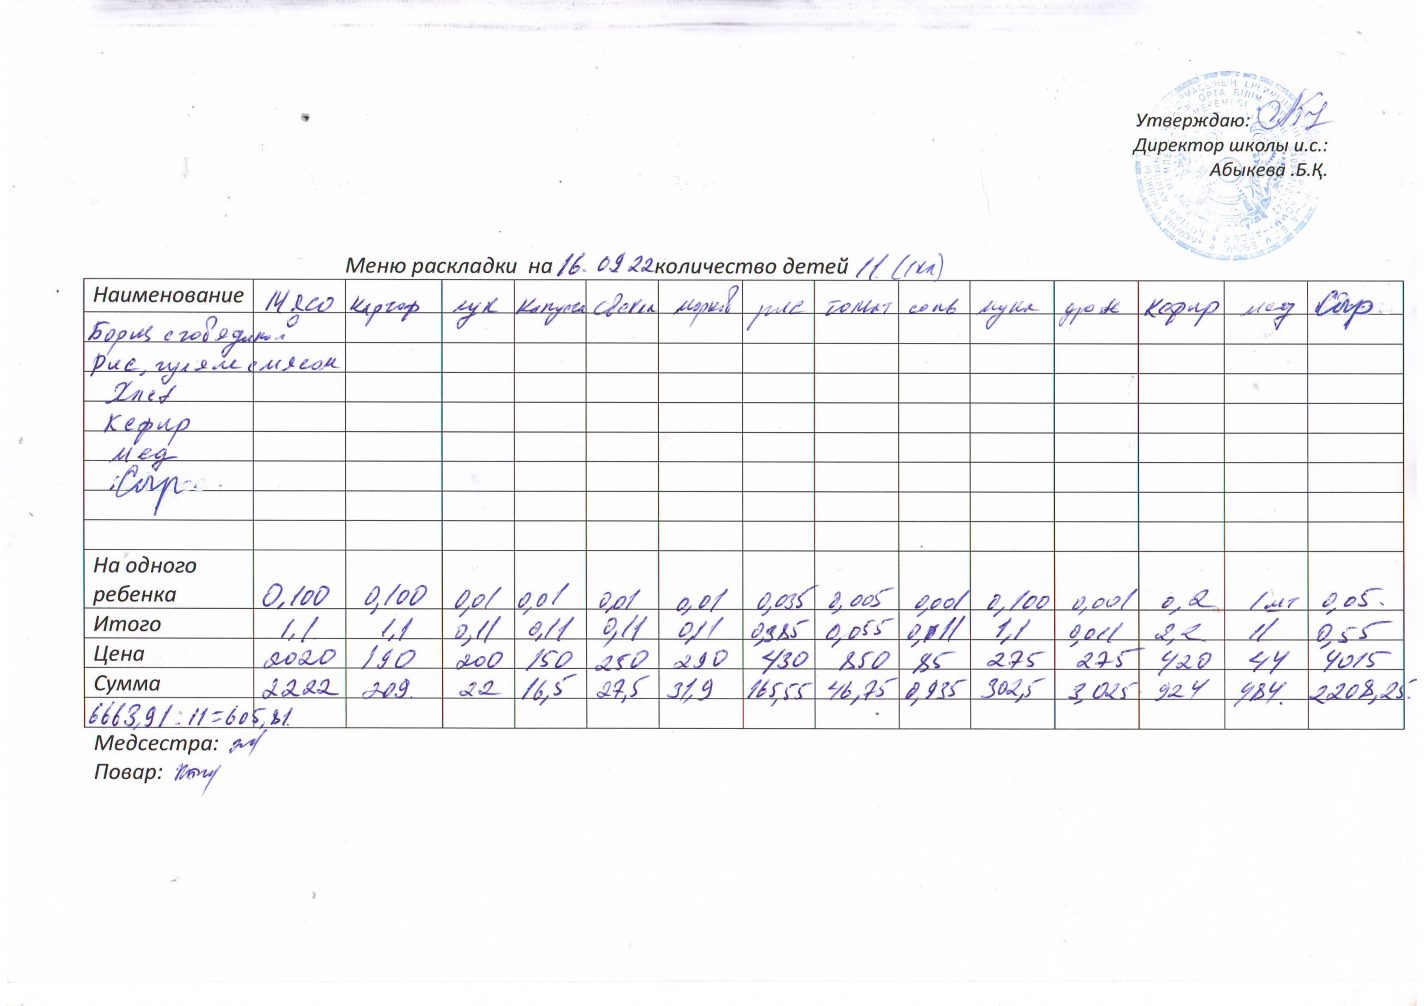 Утверждаю:
Директор школы и.с.:
Абыкева .Б.Қ.
Меню раскладки на 16. 09 22 количество детей 11. (1кл)
Наименование Мясо картоф лук капуста свекла морков рис томат соль мука дрож кефир мед Сыр.
Борщ с говядиной
Рис, гуляш с мясом
Хлеб
Кефир
мед
Сыр
На одного
ребенка 0,100 0,100 0,01 0,01 0,01 0,01 0,035 0,005 0,001 0,100 0,001 0,2 1шт 0,05.
Итого 1,1 1,1 0,11 0,11 0,11 0,11 0,385 0,055 0,011 1,1 0,011 2,2 11 0,55
Цена 2020 190 200 150 250 290 430 850 85 275 275 420 44 4015
Сумма 2222 209. 22 16,5 27,5 31,9 165,55 46,75 0,935 302,5 3,025 924 484. 2208,25.
6663,91:11=605,81.
Медсестра:
Повар: